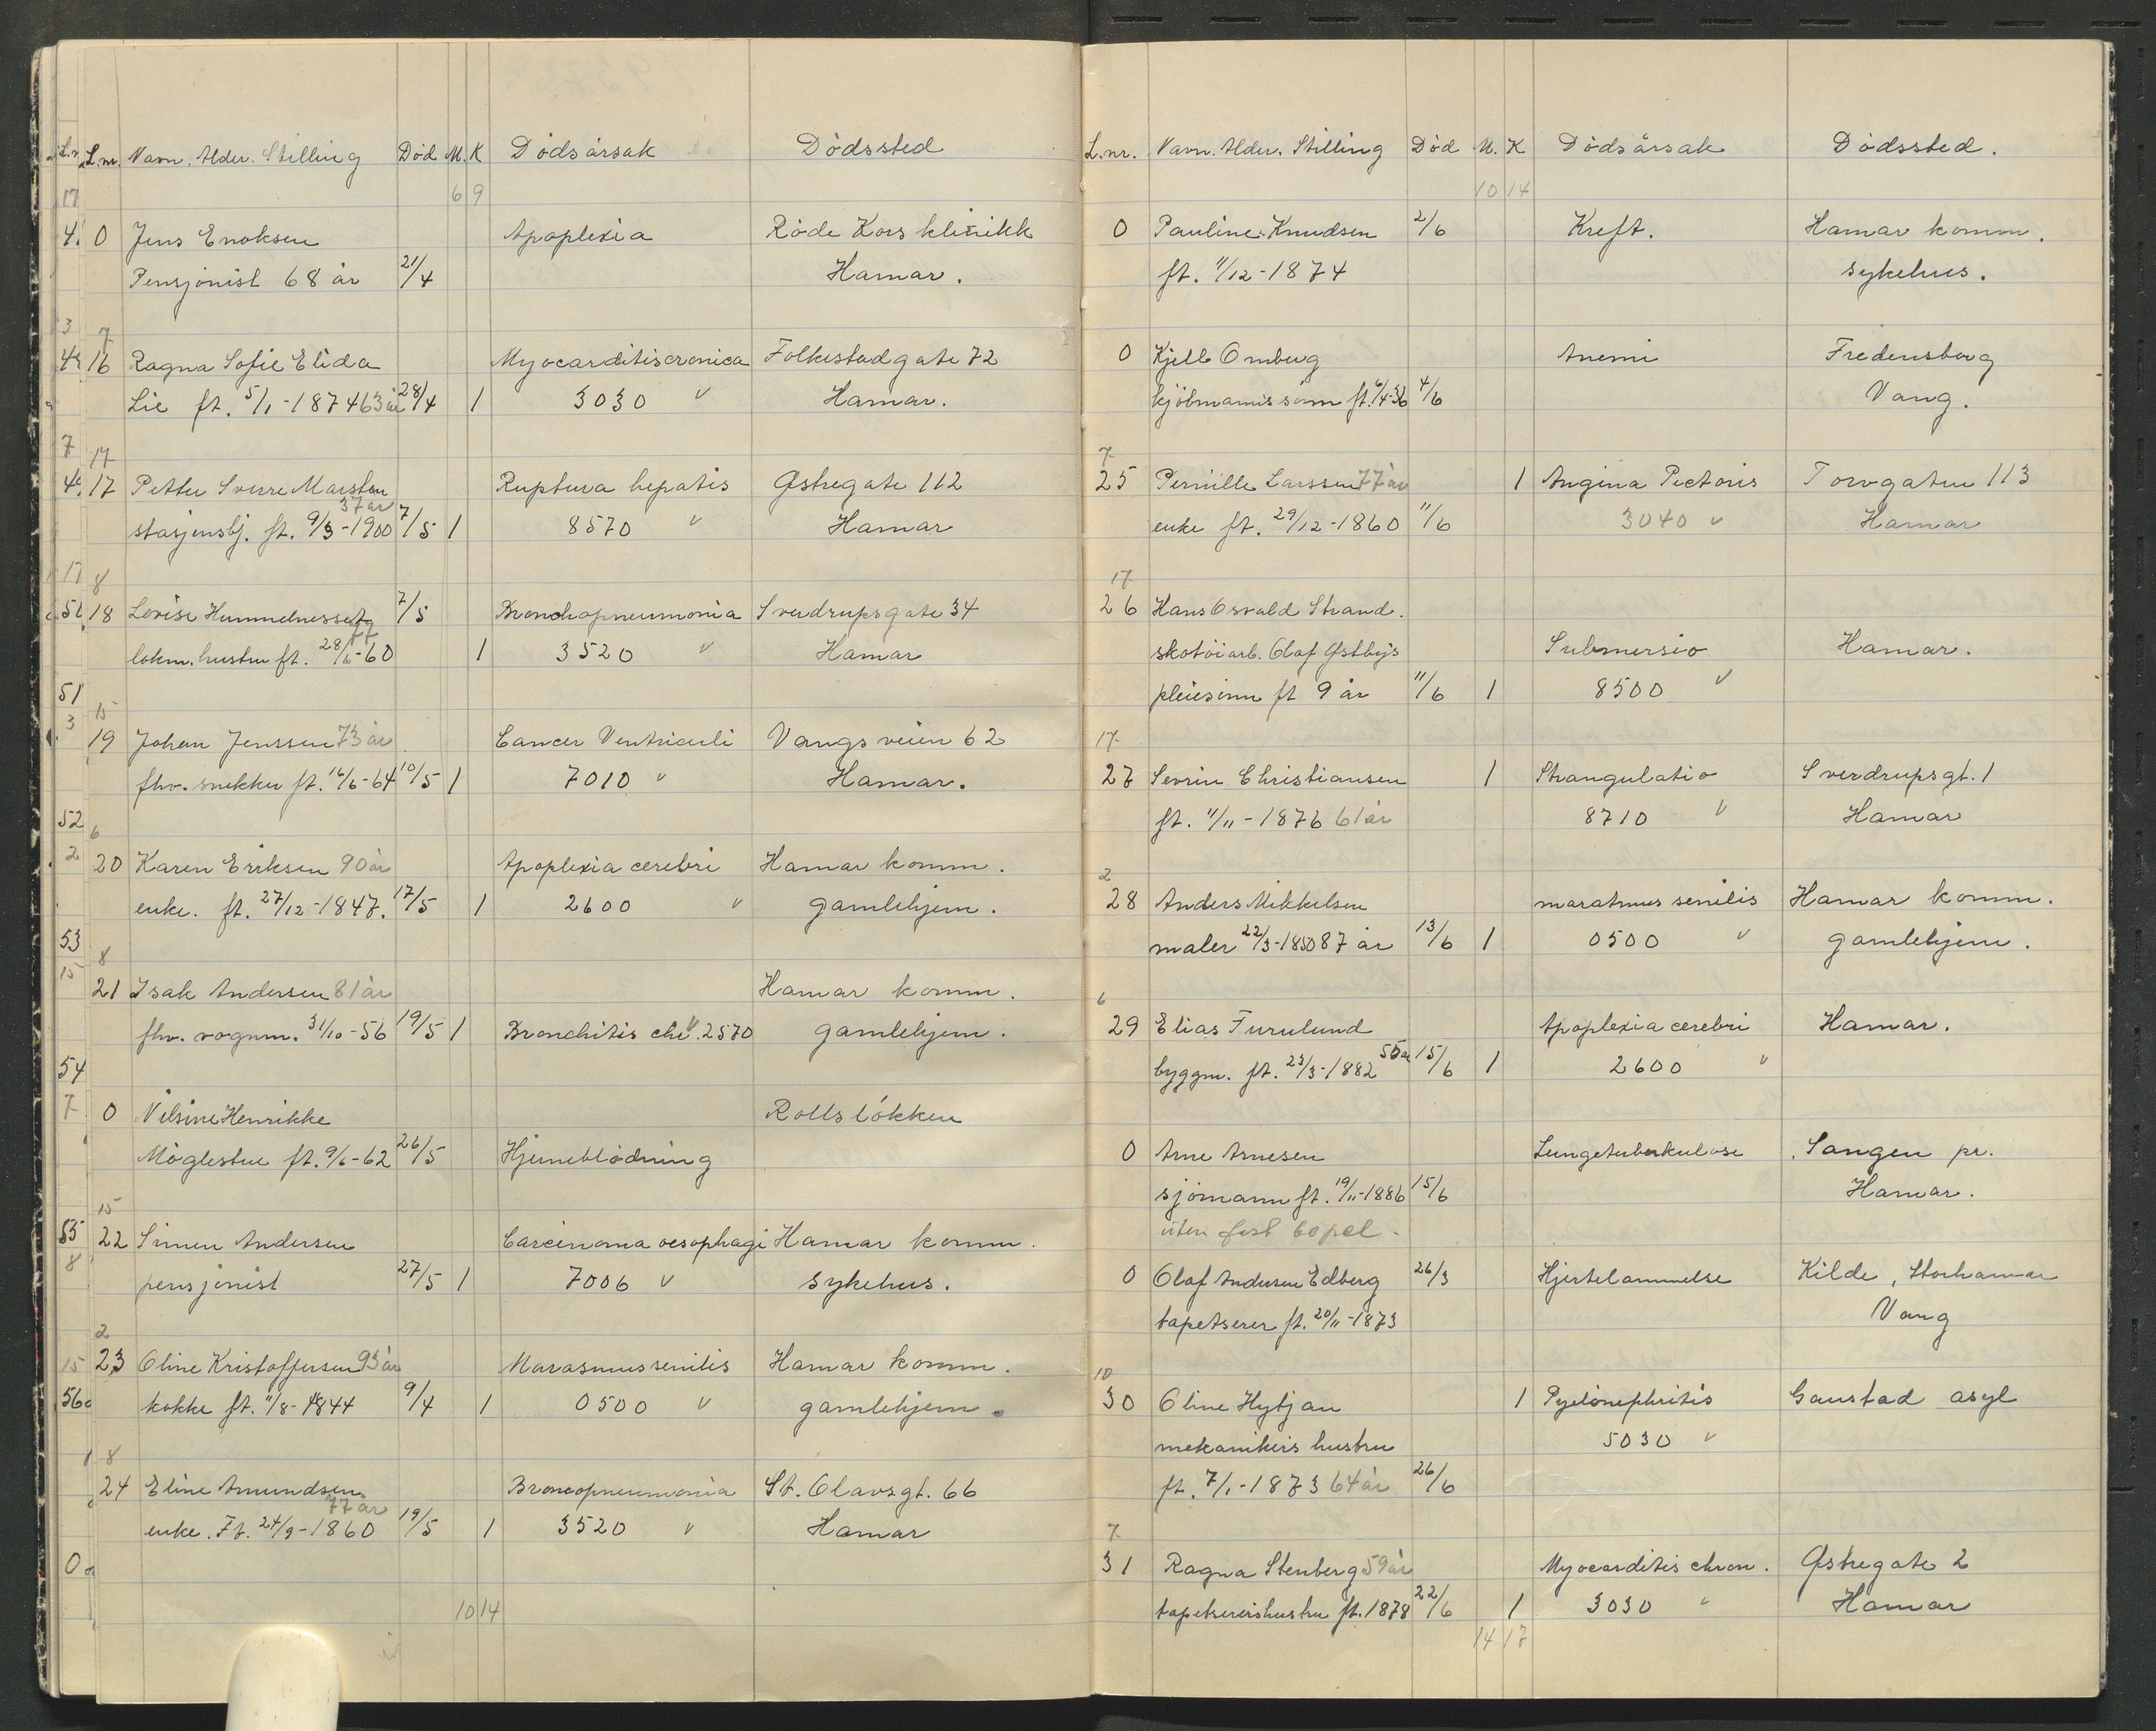 L.nr. Navn. Alder. Stilling Død M. K Dødsårsak Dødssted
6 9
0 Jens Enoksen Apoplexia Røde Kors klinikk
Pensjonist 68 år 21/4 Hamar.
7
16 Ragna Sofie Elida Myocarditis cronica Folkestadgate 72
Lie ft. 5/1-1874 63 år 28/4 1 3030 v Hamar.
17
17 Petter Sverre Marsten Ruptura hepatis Østregate 112
37 år
stasjonsbj. ft. 9/3-1900 7/5 1 8570 v Hamar
8
18 Lovise Hummelnesset 7/5 Bronchopneumonia Sverdrupsgate 34
77
lokm. hustru ft. 28/6-60 1 3520 v Hamar
15
19 Johan Jenssen 73 år Cancer Ventriculi Vangsveien 62
fhv. snekker ft. 16/6-64 10/5 1 7010 v Hamar.
6
20 Karen Eriksen 90 år Apoplexia cerebri Hamar komm.
enke. ft. 27/12-1847. 17/5 1 2600 v gamlehjem.
8
21 Isak Andersen 81 år Hamar komm.
fhv. vognm. 31/10-56 19/5 1 Bronchitis chr. v 2570 gamlehjem.
0 Nilsine Henrikke Rollsløkken
Møglestue ft. 9/6-62 26/5 Hjerneblødning
15
22 Simen Andersen Carcinoma oesophagi Hamar komm.
pensjonist 27/5 1 7006 v sykehus.
2
23 Oline Kristoffersen 93 år Marasmus senilis Hamar komm.
kokke ft. 11/8-1844 9/4 1 0500 v gamlehjem.
8
24 Eline Amundsen Broncopneumonia St. Olavsgt. 66
77 år
enke. Ft. 24/9-1860 19/5 1 3520 v Hamar
10 14
L.nr. Navn. Alder. Stilling Død M. K Dødsårsak Dødssted.
10 14
0 Pauline Knudsen 2/6 Kreft. Hamar komm.
ft. 11/12-1874 sykehus.
0 Kjell Omberg Anemi Fredensborg
kjøbmannssønn ft. 6/4-36 4/6 Vang.
7
25 Pernille Larssen 77 år 1 Angina Pectoris Torvgaten 113
enke ft. 29/12-1860 11/6 3040 v Hamar
17
26 Hans Osvald Strand.
skotøiarb. Olaf Østbys Submersio Hamar.
pleiesønn ft 9 år 11/6 1 8500 v
17
27 Sevrin Christiansen 1 Strangulatio Sverdrupsgt. 1
ft. 11/11-1876 61 år 8710 v Hamar
2
28 Anders Mikkelsen maratmus senilis Hamar komm.
maler 22/3-1850 87 år 13/6 1 0500 v gamlehjem.
6
29 Elias Furulund Apoplexia cerebri Hamar.
byggm. ft. 23/3-1882 55 år 15/6 1 2600 v
0 Arne Arnesen Lungetuberkulose Sangen pr.
sjømann ft. 19/11-1886 15/6 Hamar.
uten fast bopel.
0 Olaf Andersen Edberg 26/3 Hjertelammelse Kilde, Storhamar
tapetserer ft. 20/11-1873 Vang
10
30 Oline Hytjan 1 Pyelonephritis Gaustad asyl
mekanikers hustru 5030 v
ft. 7/1-1873 64 år 26/6
7
31 Ragna Stenberg 59 år Myocarditis chron. Østregate 2
tapetserershustru ft. 1878 22/6 1 3030 v Hamar
14 17